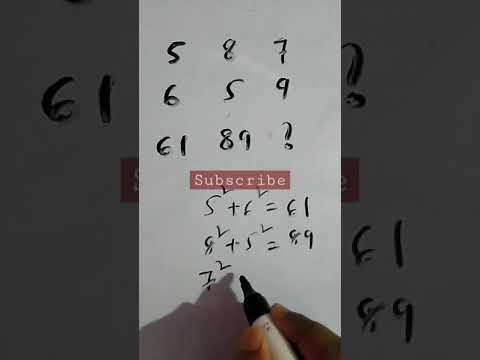 5 8 7
6 5 9
61 89 ?
Subscribe
5² + 6² = 61
8² + 5² = 89
7²